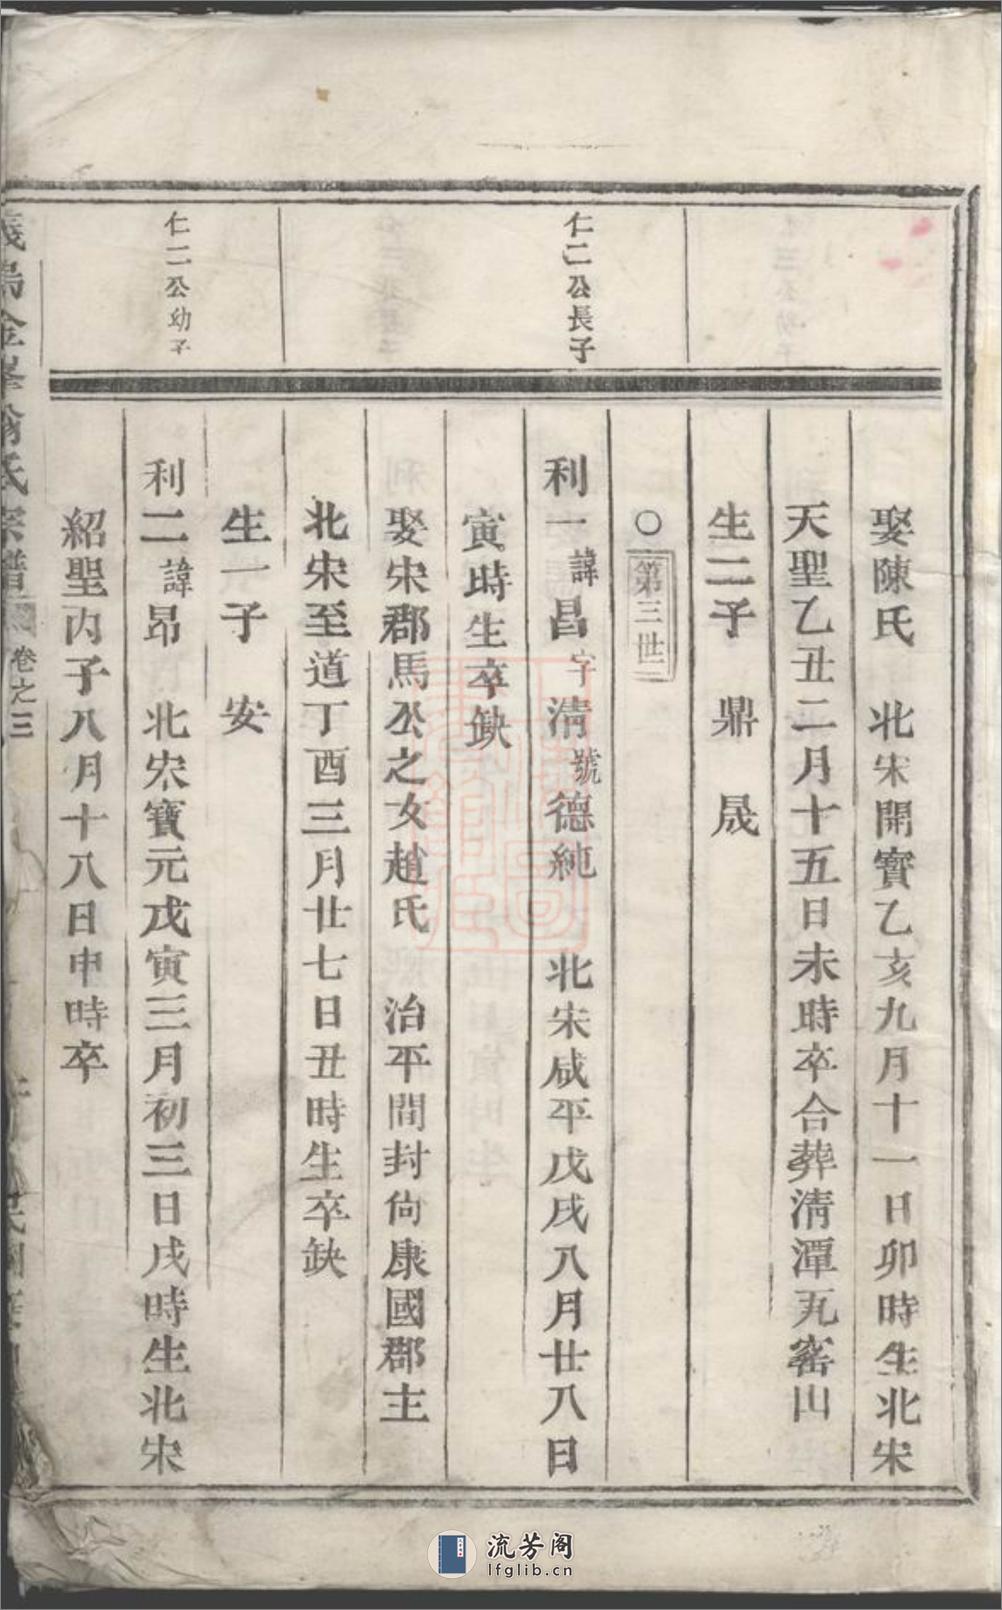 娶陳氏　北宋開寳乙亥九月十一日卯時生北宋
天聖乙丑二月十五日未時卒合葬清潭瓦窰山
生二子　鼎　晟
○第三世
仁二公長子
利一諱昌字清號德純　北宋咸平戊戌八月廿八日
寅時生卒缺
娶宋郡馬公之女趙氏　治平間封尙康國郡主
北宋至道丁酉三月廿七日丑時生卒缺
生一子　安
仁二公幼子
利二諱昂　北宋寳元戊寅三月初三日戌時生北宋
紹聖丙子八月十八日申時卒
義烏金峯
氏宗譜
卷之三
流芳阁
lfglib.cn